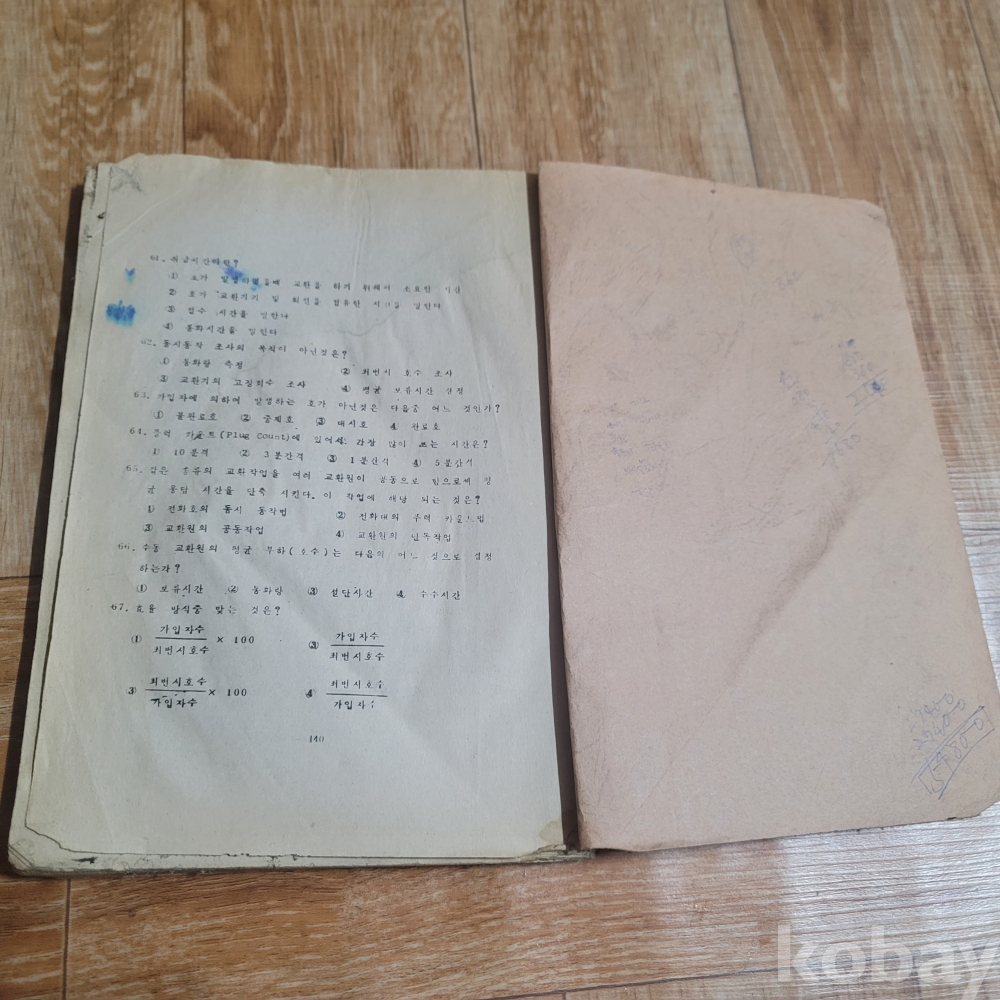 61. 취급시간이란?
① 호가 발생하였을때 교환을 하기 위해서 소요한 시간
② 호가 교환기기 및 회선을 점유한 시간을 말한다
③ 접수 시간을 말한다
④ 통화시간을 말한다
62. 동시통화 조사의 목적이 아닌것은?
① 통화량 측정 ② 최번시 호수 조사
③ 교환기의 고장회수 조사 ④ 평균 보유시간 결정
63. 가입자에 의하여 발생하는 호가 아닌것은 다음중 어느 것인가?
① 불완료호 ② 중계호 ③ 대시호 ④ 완료호
64. 플럭 카운트(Plug Count)에 있어서 가장 많이 쓰는 시간은?
① 10분격 ② 3분간격 ③ 1분간격 ④ 5분간격
65. 같은 종류의 교환작업을 여러 교환원이 공동으로 함으로써 평
균 응답 시간을 단축 시킨다. 이 작업에 해당 되는 것은?
① 전화호의 동시 동작법 ② 전화대의 카운트법
③ 교환원의 공동작업 ④ 교환원의 단독작업
66. 수동 교환원의 평균 부하(호수)는 다음의 어느 것으로 결정
하는가?
① 보유시간 ② 통화량 ③ 절단시간 ④ 수수시간
67. 효율 방식중 맞는 것은?
① 가입자수 / 최번시호수 × 100 ② 가입자수 / 최번시호수
③ 최번시호수 / 가입자수 × 100 ④ 최번시호수 / 가입자수
140
kobay